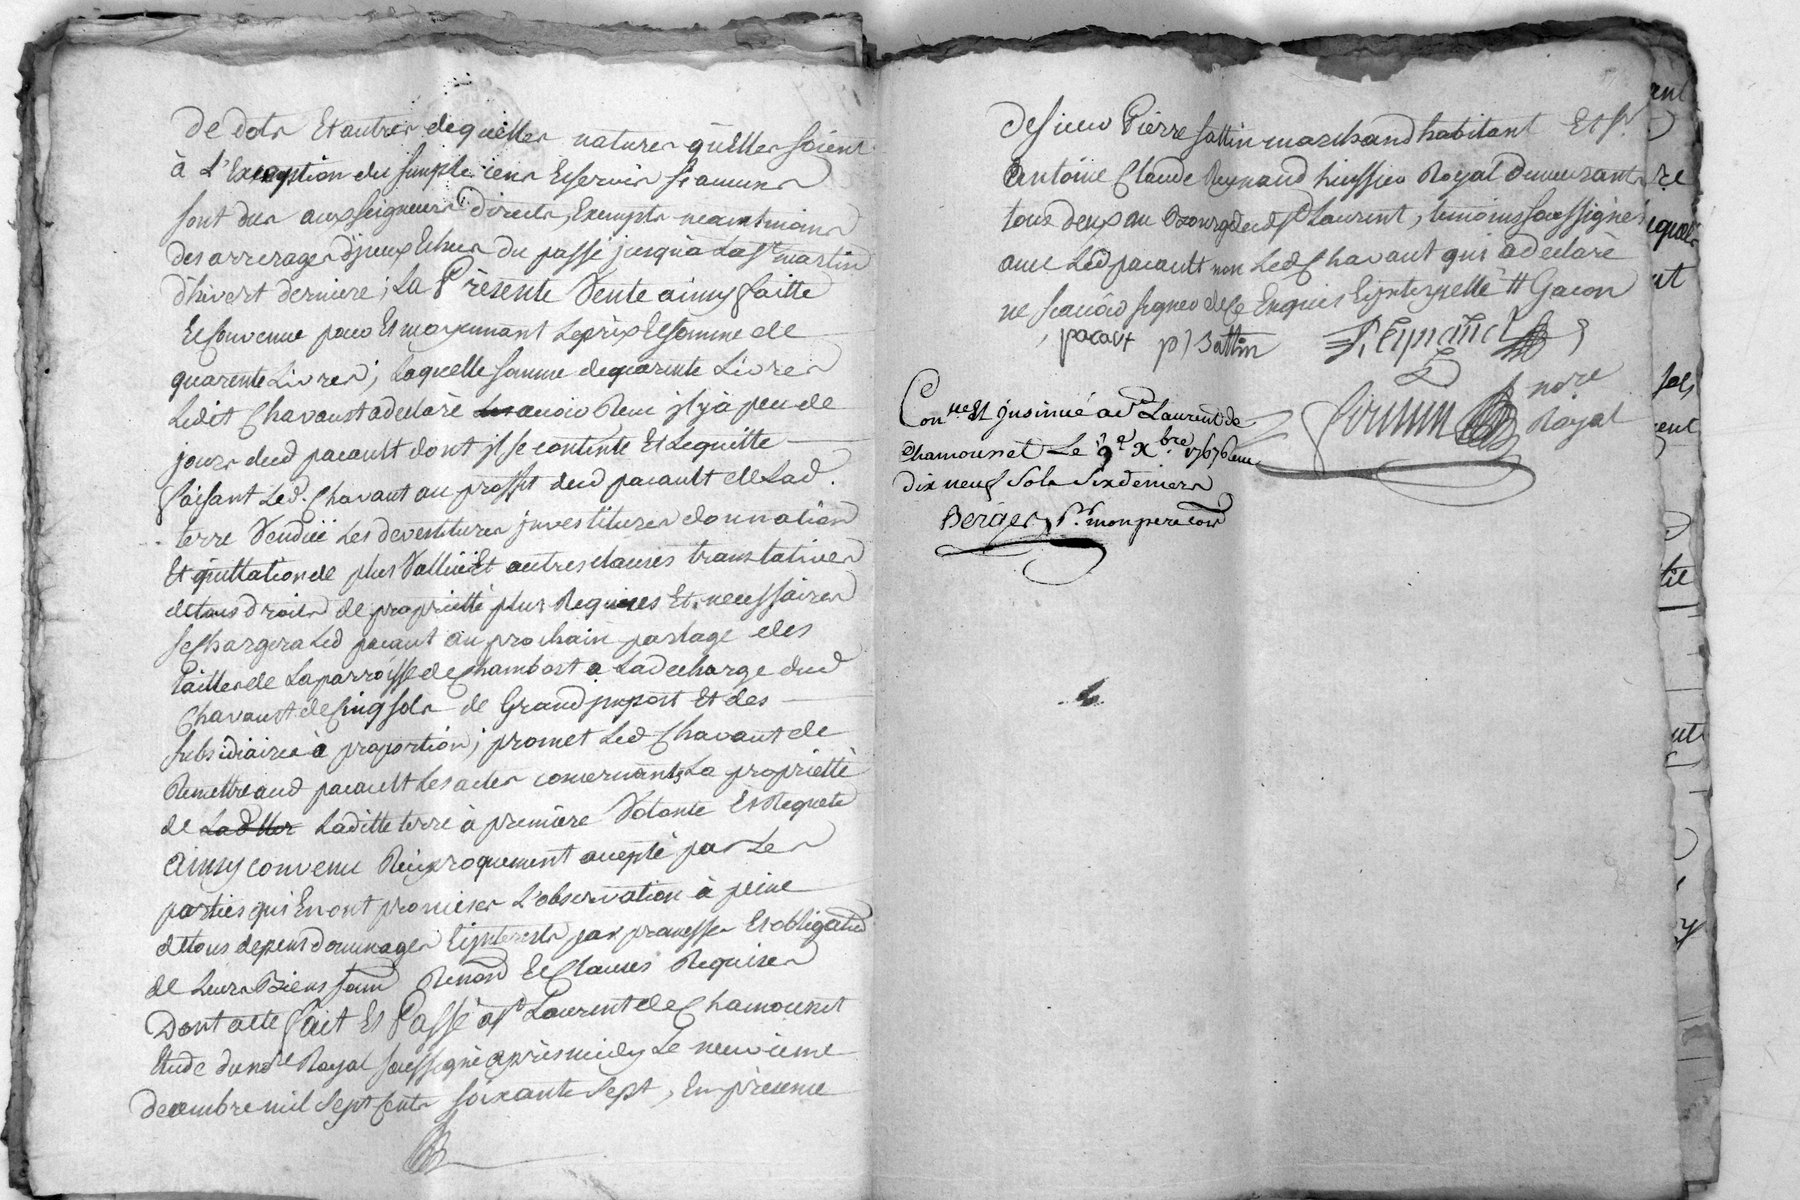 de dots Et autres dequelles natures qu'Elles soient
à L'Exception du simple cens Et servis si aucuns
sont dus aux seigneurs directs, Exempts neantmoins
des arrerages d'jceux Echus du passé jusqu'a La St martin
d'hivert derniere; La Présente Vente ainsy faitte
Et Convenue pour Et moyennant Le prix Et somme de
quarente Livres; Laquelle somme de quarente Livres
Ledit Chavant a declaré avoir Recu jl y a peu de
jours dud pacault dont jl se contente Et Le quitte
faisant Led. Chavant au proffit dud pacault de Lad.
terre Vendüe Les devestitures jnvestitures donnation
Et quittation de plus Vallüe Et autres clauses translatives
de tous droits de proprietté plus Requises Et necessaires
se chargera Led pacaut au prochain partage des
tailles de La parroisse de Chambost a La decharge dud
Chavant de Cinq sols de Grand jmpost Et des
subsidiaires à proportion; promet Led Chavant de
Remettre aud pacault Les actes concernants La proprietté
de Laditte terre à première Volonté Et Requete
Ainsy convenu Reciproquement accepté par Les
parties qui En ont promises L'observation à peine
de tous depens dommages Et jnterests par promesses Et obligation
de Leurs Biens soum Renon Et Clauses Requises
Dont acte fait Et Passé a St Laurent de Chamousset
Etude du nore Royal soussigné après midy Le neuvieme
decembre mil sept cents soixante sept, En présence
de sieur Pierre sattin marchand habitant Et Sr
Antoine Claude Reynaud huissier Royal demeurants
tous deux au Bourg dud St Laurent, temoins soussignés
avec Led pacault non Led Chavant qui a declaré
ne scavoir signer de ce Enquis Et jnterpellé Gacon
pacaut p) Sattin Reynaud
nore
Royal
Con lle Et jnsinué a St Laurent de
Chamousset Le 9e Xbre 1767 Recu
dix neuf sols six deniers
Berger pr. mon pere